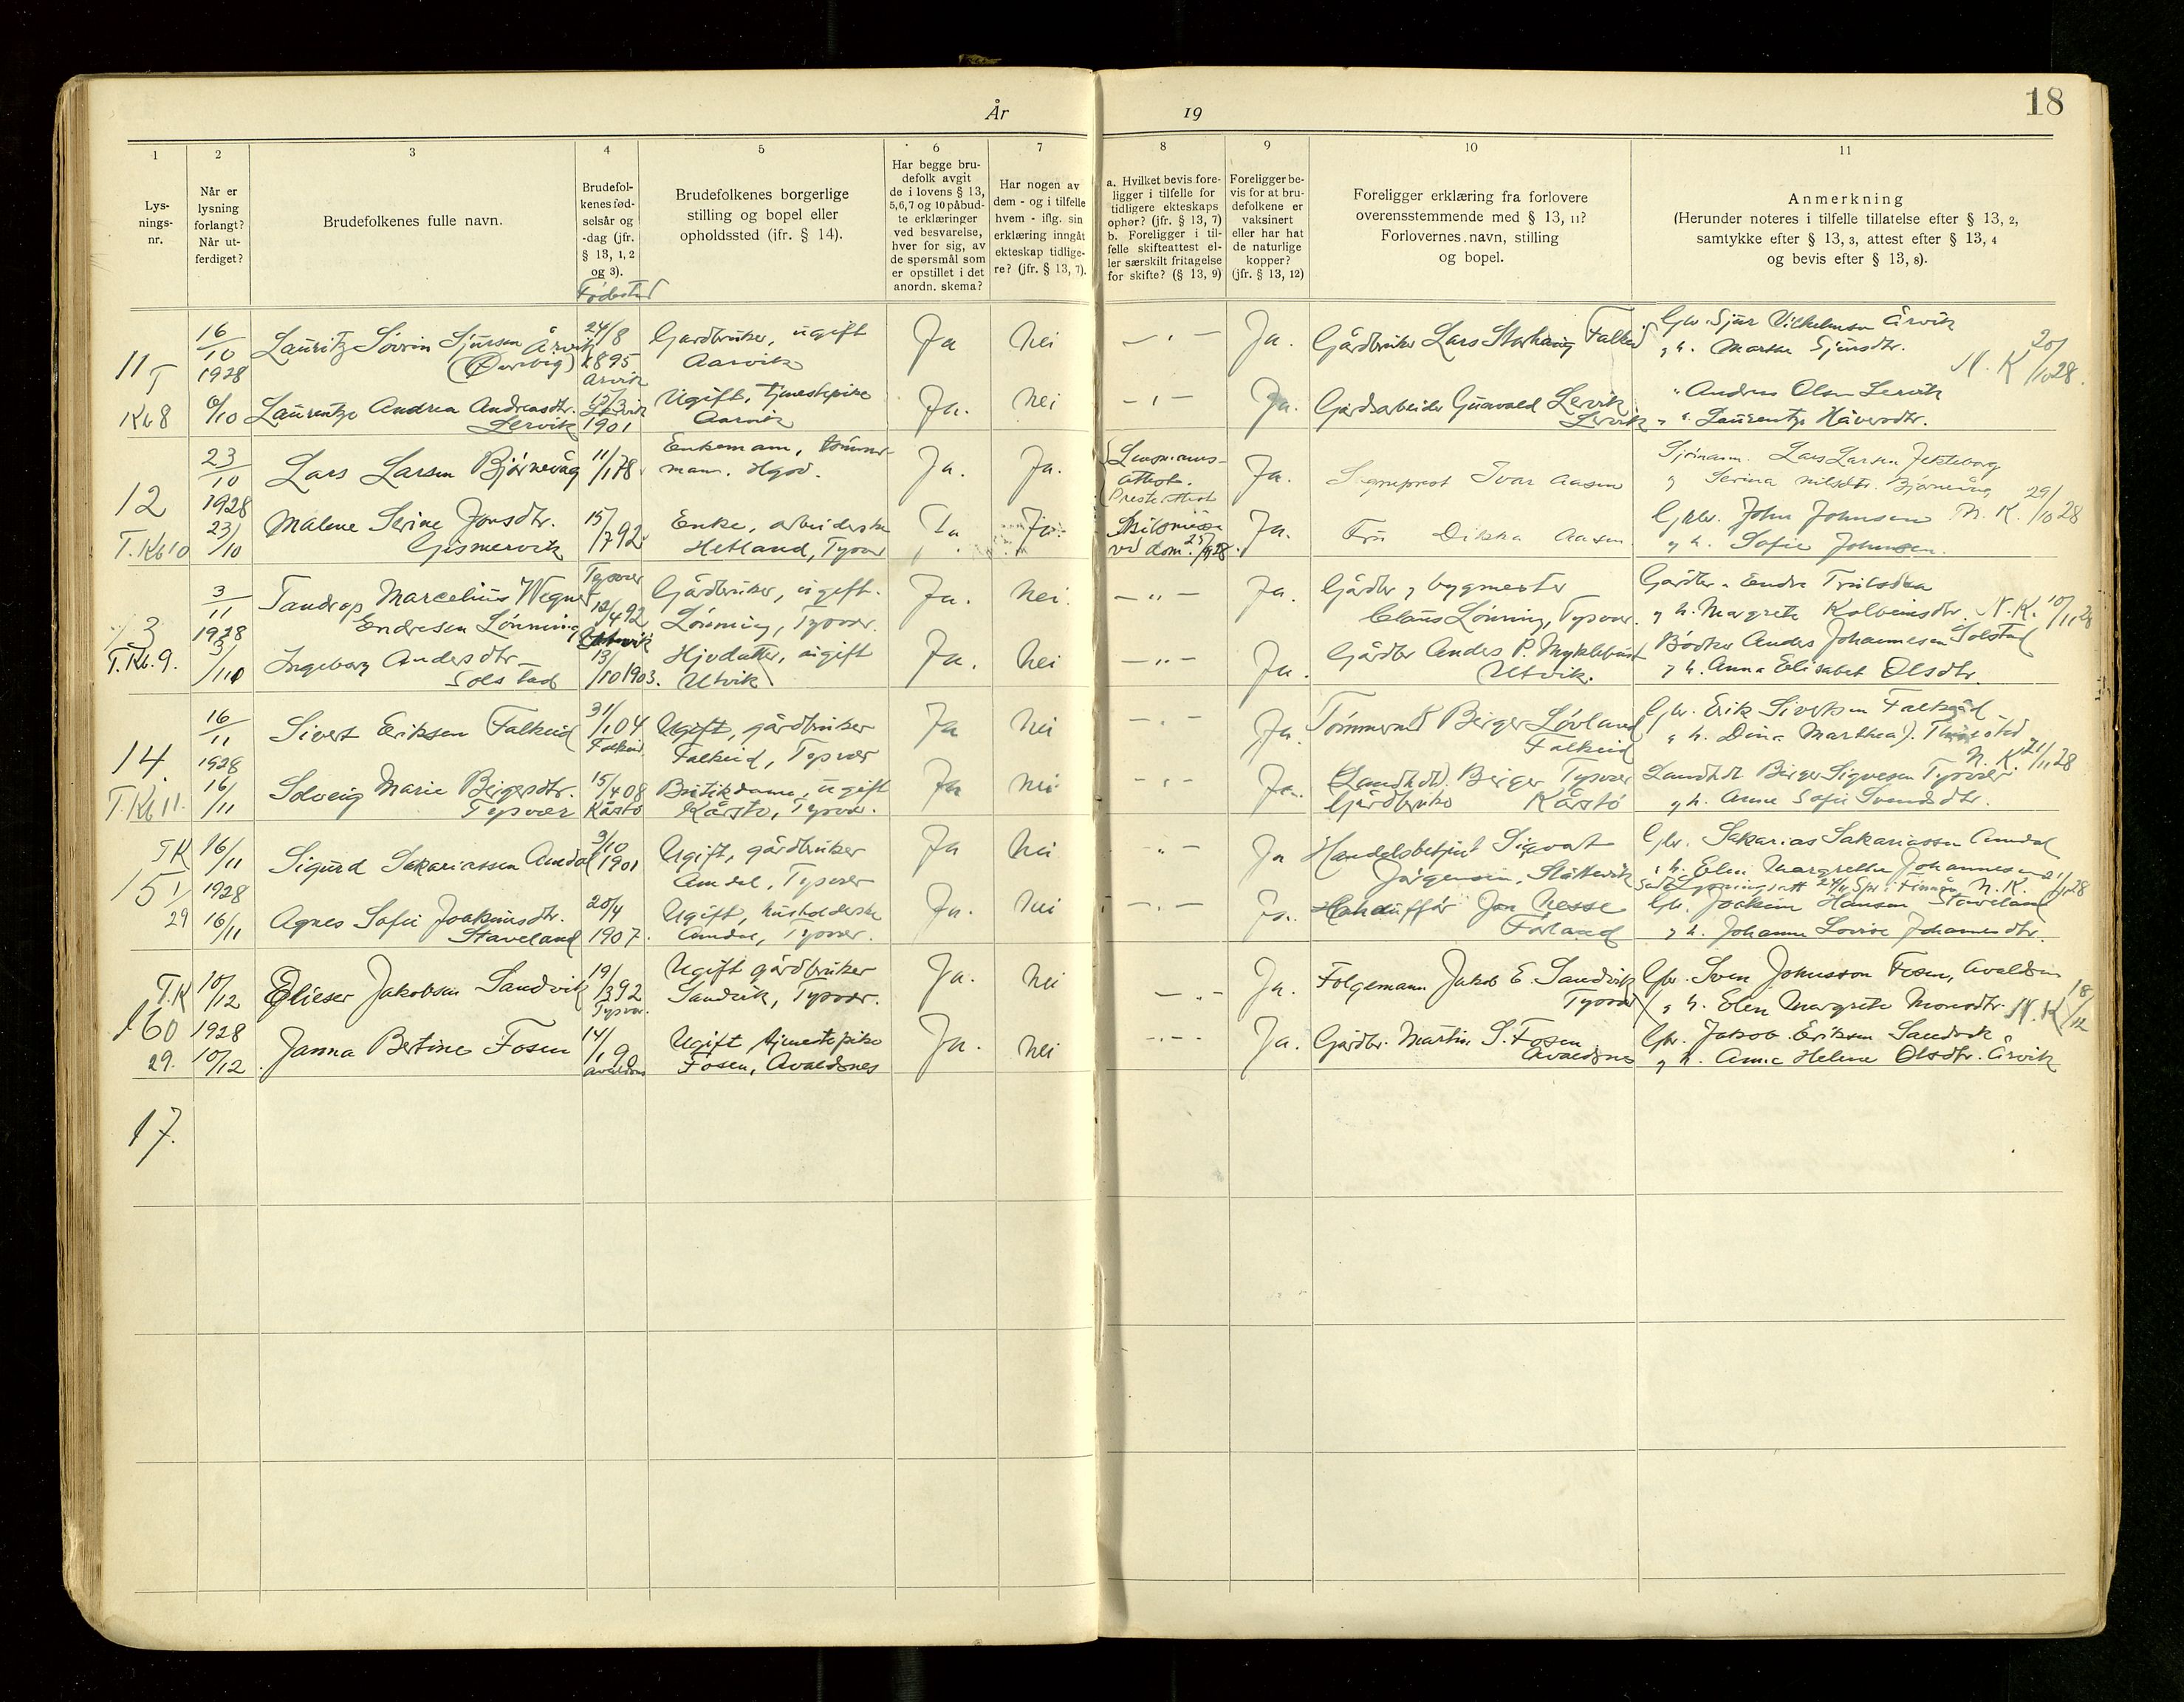 År 19
18
1
2
3
4
5
6
7
8
9
10
11
Lys-
nings-
nr.
Når er
lysning
forlangt?
Når ut-
ferdiget?
Brudefolkenes fulle navn.
Brudefol-
kenes fød-
selsår og
-dag (jfr.
§ 13, 1, 2
og 3).
Fødested
Brudefolkenes borgerlige
stilling og bopel eller
opholdssted (ifr. § 14).
Har begge bru-
defolk avgit
de i lovens § 13,
5,6,7 og 10 påbud-
te erklæringer
ved besvarelse,
hver for sig, av
de spørsmål som
er opstillet i det
anordn. skema?
Har nogen av
dem - og i tilfelle
hvem - iflg. sin
erklæring inngåt
ekteskap tidlige-
re? (jfr. § 13, 7).
a. Hvilket bevis fore-
ligger i tilfelle for
tidligere ekteskaps
ophør? (jfr. § 13, 7)
b. Foreligger i til-
felle skifteattest el-
ler særskilt fritagelse
for skifte? (§ 13, 9)
Foreligger be-
vis for at bru-
defolkene er
vaksinert
eller har hat
de naturlige
kopper?
(jfr. § 13, 12)
Foreligger erklæring fra forlovere
overensstemmende med § 13, 11?
Forlovernes navn, stilling
og bopel.
Anmerkning
(Herunder noteres i tilfelle tillatelse efter § 13, 2,
samtykke efter § 13, 3, attest efter § 13, 4
og bevis efter § 13, 8).
11 T
Kb 8
16/10
1928
Lauritz Sovrin Sjursen Årvik
24/8
1895
Årvik
Gardbruker, ugift
Aarvik
Ja
Nei
— " —
Ja.
Gårdbruker Lars Storhaug Falkeid
Gbr. Sjur Vilhelmsen Årvik
og h. Marta Sjursdtr.
N. K 20/10 28.
Laurentze Andrea Andreasdtr.
Lervik
12/3
Lervik
1901
Ugift, tjenestepike
Aarvik
Ja.
Nei
— " —
Ja.
Gårdsarbeider Gunvald Lervik
Lervik
" Andreas Olsen Lervik
" " Laurentze Håversdtr.
12
T. Kb 10
23/10
1928
23/10
Lars Larsen Bjørnevåg
11/1 78
Enkemann, tømmer-
mann. Hgsd.
Ja.
Ja.
Lensmanns-
attest.
Presteattest
Ja.
Sogneprest Ivar Aasen
Sjømann Lars Larsen Jekteberg
og Serina Nilsdtr. Bjørnevåg
Malene Serine Jonsdtr.
Gismervik
15/7 92
Enke, arbeiderske
Hetland, Tysvær
Ja.
Ja.
Skilsmisse
ved dom.
Ja.
Fru Dikka Aasen
Gbr. John Johnsen N. K. 29/10 28
og h. Sofie Johnsen.
13
T. Kb. 9.
3/11
1928
Tandrup Marcelius Wegner
Endresen Lønning
Tysvær
12/4 92
Gårdbruker, ugift.
Lønning, Tysvær.
Ja.
Nei.
— " —
Ja.
Gårdbr og bygmester
Claus Lønning, Tysvær.
Gårdbr. Endre Trulssen
og h. Margrete Kolbensdtr. N. K. 10/11 28
Ingeborg Andersdtr
Solstad
13/10 1903.
Hjvdatter, ugift
Utvik
Ja.
Nei
— " —
Ja.
Gårdbr Anders P. Myklebust
Utvik.
Bødker Anders Johannesen Solstad
og h. Anna Elisabet Olsdtr.
14
T. Kb 11.
16/11
1928
16/11
Sivert Eriksen Falkeid
31/1 04
Falkeid
Ugift, gårdbruker
Falkeid, Tysvær
Ja
Nei
— " —
Ja.
Tømmermd Berger Løvland
Falkeid
Gbr. Erik Sivertsen Falkeid
og h. Dina Marthea J.
N. K. 21/11 28
Solveig Marie Bergesdtr.
Tysvær
15/4 08
Kårstø
Butikdame, ugift
Kårstø, Tysvær.
Ja
Nei
— " —
Ja.
(Landhdl). Berger Tysvær
Gårdbruker Kårstø
Landhdl. Berger Sigvesen Tysvær.
og h. Anne Sofie Svendsdtr.
T K
15
29
16/11
1928
16/11
Sigurd Sakariassen Amdal
3/10
1901
Ugift, gårdbruker
Amdal, Tysvær
Ja
Nei
— " —
Ja
Handelsbetjent Sigvart
Jørgensen, Slåttevik
Gbr. Sakarias Sakariassen Amdal
og h. Elen Margrethe Johannesen
N. K.
Agnes Sofie Joakimsdtr.
Staveland
20/4
1907.
Ugift, husholderske
Amdal, Tysvær.
Ja.
Nei
— " —
Ja.
Jon Nesse
Førland
Gbr. Joakim Hansen Staveland
og h. Johanne Lovise Johannesdtr.
T. K
16
29.
10/12
1928
10/12
Elieser Jakobsen Sandvik
19/3 92
Tysvær.
Ugift gårdbruker
Sandvik, Tysvær.
Ja.
Nei
— " —
Ja.
Folgemann Jakob E. Sandvik
Tysvær
Gbr. Sven Johnsson Fosen, Avaldsn
og h. Elen Margrete Monsdtr. N. K 18/12
Janna Bertine Fosen
14/1 9
Avaldsnes
Ugift tjenestepike
Fosen, Avaldsnes
Ja.
Nei
— " —
Ja.
Gårdbr. Martin S. Fosen
Avaldsnes
Gbr. Jakob Eriksen Sandvik
og h. Anne Helene Olsdtr. Årvik
17.